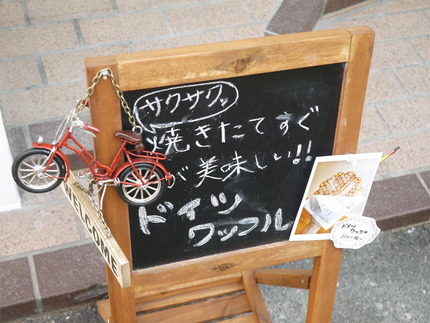 サクサクッ
焼きたてすぐ
が美味しい!!
ドイツ
ワッフル
ドイツ
ワッフル
WELCOME